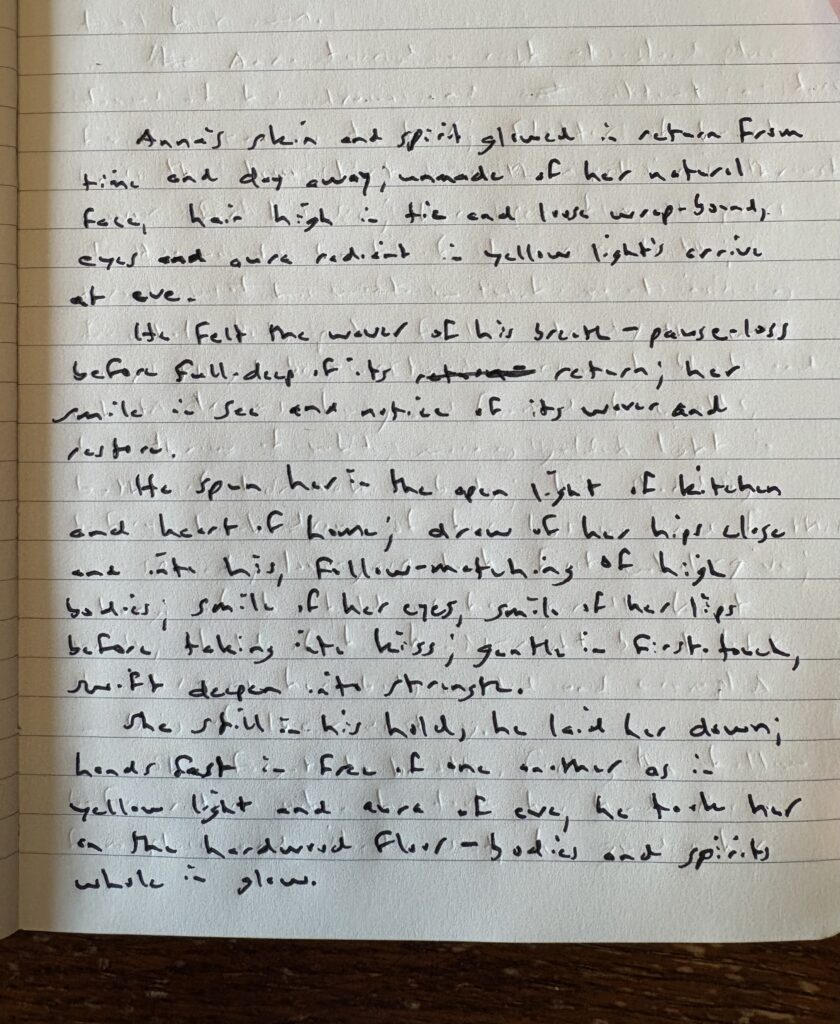 Anna's skin and spirit glowed in return from
time and day away; unmade of her natural
face, hair high in tie and loose wrap-bound,
eyes and aura radiant in yellow light's arrive
at eve.
He felt the waver of his breath - pause-loss
before full-deep of its return; her
smile in see and notice of its waver and
restore.
He spun her in the open light of kitchen
and heart of home; drew of her hips close
and into his, follow-matching of high
bodies; smile of her eyes, smile of her lips
before taking into kiss; gentle in first-touch,
swift deepen into strength.
She still in his hold, he laid her down;
hands fast in free of one another as in
yellow light and aura of eve, he took her
on the hardwood floor - bodies and spirits
whole in glow.